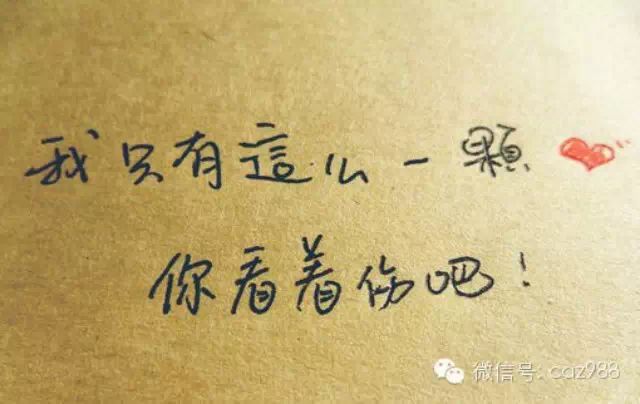 我只有這么一顆❤
你看着伤吧！
微信号: caz988